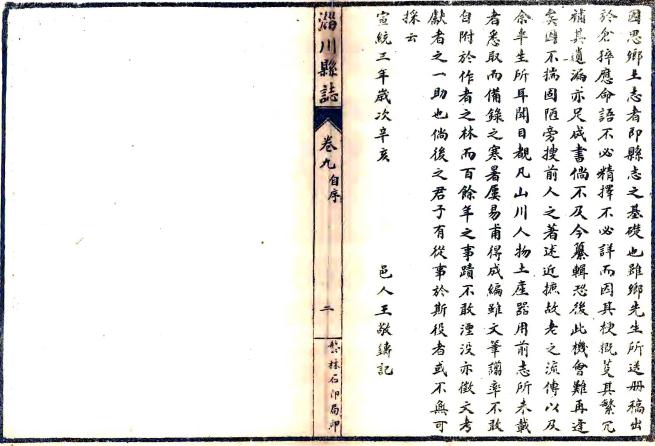 因思鄉土志者即縣志之基礎也雖鄉先生所送冊稿出
於倉猝應命語不必精擇不必詳而因其梗概芟其繁冗
補其遺漏亦足成書倘不及今纂輯恐後此機會難再逢
矣因不揣固陋旁搜前人之著述近摭故老之流傳以及
余半生所耳聞目覩凡山川人物土產器用前志所未載
者悉取而備錄之寒暑屢易甫得成編雖文筆譾率不敢
自附於作者之林而百餘年之事蹟不敢湮沒亦徵文考
獻者之一助也倘後之君子有從事於斯役者或不無可
採云
宣統三年歲次辛亥 邑人王敬鑄記
淄川縣誌
卷九 自序
二
藝林石印局印